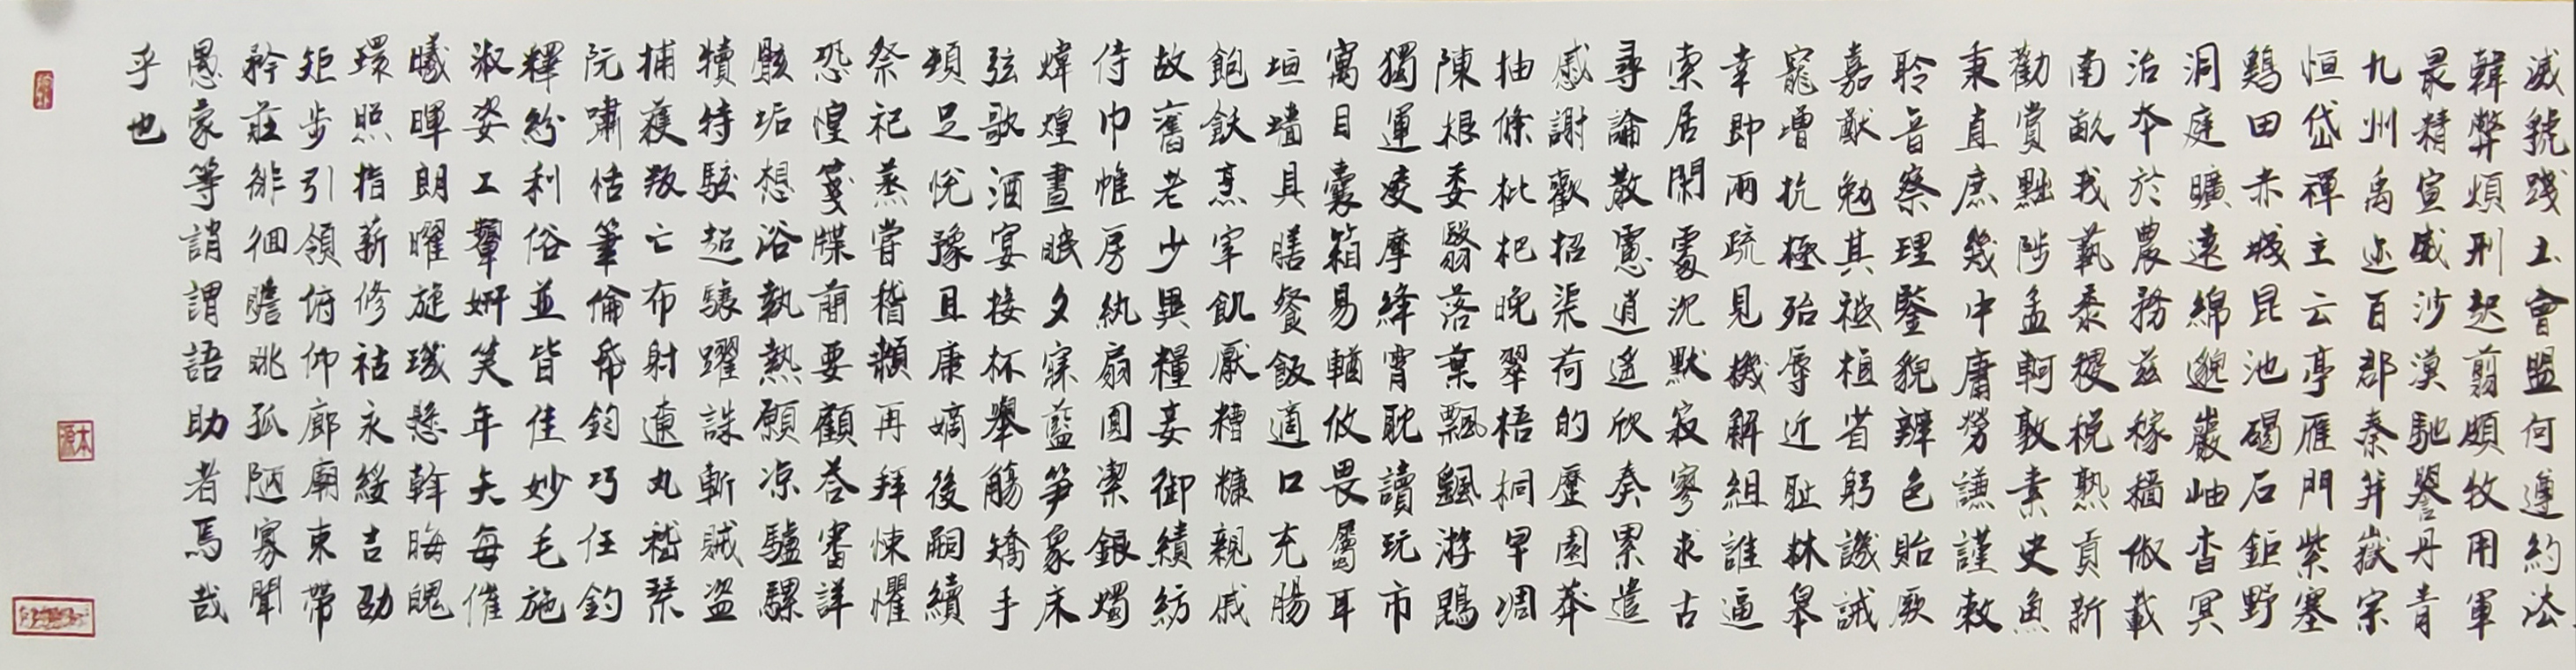 滅虢踐土會盟何遵約法
韓弊煩刑起翦頗牧用軍
最精宣威沙漠馳譽丹青
九州禹迹百郡秦并嶽宗
恒岱禪主云亭雁門紫塞
鷄田赤城昆池碣石鉅野
洞庭曠遠綿邈巖岫杳冥
治本於農務茲稼穡俶載
南畝我藝黍稷稅熟貢新
勸賞黜陟孟軻敦素史魚
秉直庶幾中庸勞謙謹敕
聆音察理鑒貌辨色貽厥
嘉猷勉其祗植省躬譏誡
寵增抗極殆辱近耻林皋
幸即兩疏見機解組誰逼
索居閑處沈默寂寥求古
尋論散慮逍遙欣奏累遣
慼謝歡招渠荷的歷園莽
抽條枇杷晚翠梧桐早凋
陳根委翳落葉飄颻游鵾
獨運凌摩絳霄耽讀玩市
寓目囊箱易輶攸畏屬耳
垣墻具膳餐飯適口充腸
飽飫烹宰飢厭糟糠親戚
故舊老少異糧妾御績紡
侍巾帷房紈扇圓潔銀燭
煒煌晝眠夕寐藍笋象床
弦歌酒宴接杯舉觴矯手
頓足悅豫且康嫡後嗣續
祭祀蒸嘗稽顙再拜悚懼
恐惶箋牒簡要顧答審詳
骸垢想浴執熱願凉驢騾
犢特駭超驤躍誅斬賊盜
捕獲叛亡布射遼丸嵇琴
阮嘯恬筆倫紙鈞巧任釣
釋紛利俗並皆佳妙毛施
淑姿工顰妍笑年矢每催
曦暉朗曜旋璣懸斡晦魄
環照指薪修祜永綏吉劭
矩步引領俯仰廊廟束帶
矜莊徘徊瞻眺孤陋寡聞
愚蒙等誚謂語助者焉哉
乎也
本源